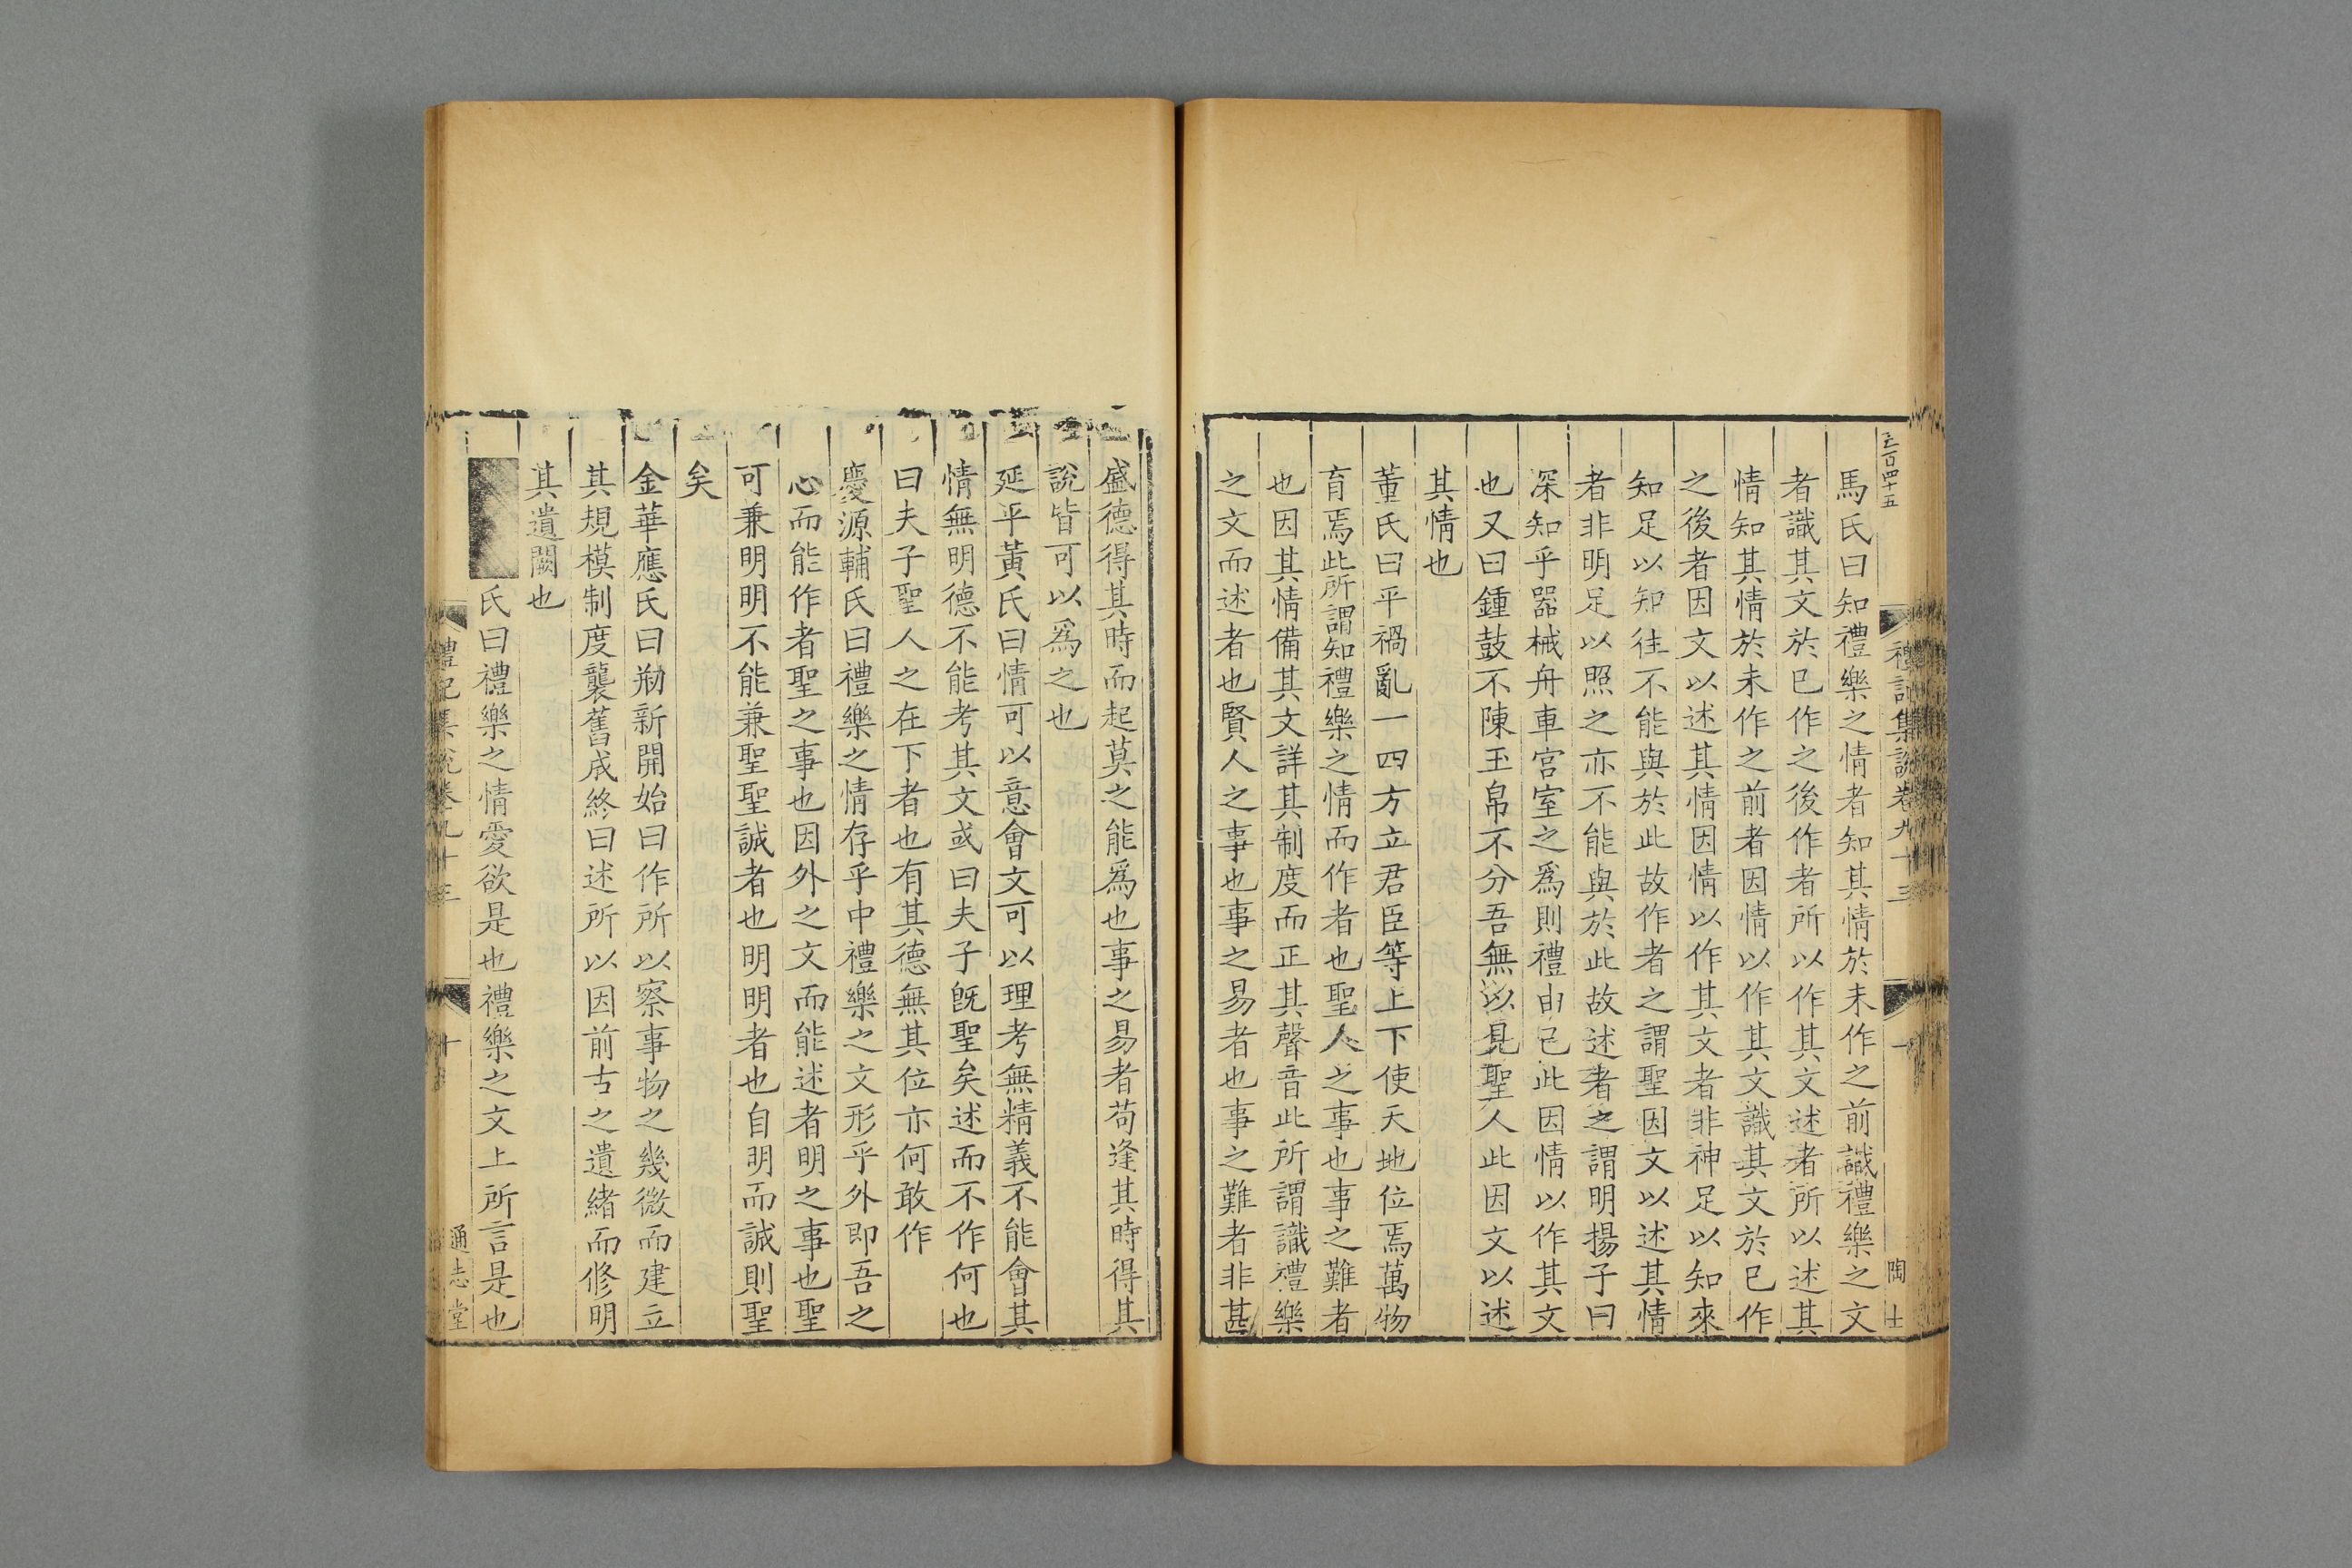 三百四十五
禮記集說卷九十三
陶士
馬氏曰知禮樂之情者知其情於未作之前識禮樂之文
者識其文於已作之後作者所以作其文述者所以述其
情知其情於未作之前者因情以作其文識其文於已作
之後者因文以述其情因情以作其文者非神足以知來
知足以知往不能與於此故作者之謂聖因文以述其情
者非明足以照之亦不能與於此故述者之謂明揚子曰
深知乎器械舟車宮室之爲則禮由已此因情以作其文
也又曰鍾鼓不陳玉帛不分吾無以見聖人此因文以述
其情也
董氏曰平禍亂一四方立君臣等上下使天地位焉萬物
育焉此所謂知禮樂之情而作者也聖人之事也事之難者
也因其情備其文詳其制度而正其聲音此所謂識禮樂
之文而述者也賢人之事也事之易者也事之難者非甚
盛德得其時而起莫之能爲也事之易者苟逢其時得其
說皆可以爲之也
延平黃氏曰情可以意會文可以理考無精義不能會其
情無明德不能考其文或曰夫子旣聖矣述而不作何也
曰夫子聖人之在下者也有其德無其位亦何敢作
慶源輔氏曰禮樂之情存乎中禮樂之文形乎外即吾之
心而能作者聖之事也因外之文而能述者明之事也聖
可兼明明不能兼聖聖誠者也明明者也自明而誠則聖
矣
金華應氏曰刱新開始曰作所以察事物之幾微而建立
其規模制度襲舊成終曰述所以因前古之遺緒而修明
其遺闕也
氏曰禮樂之情愛欲是也禮樂之文上所言是也
禮記集說卷九十三
十
通志堂